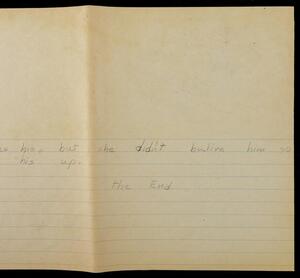 his, but she didn't bulive him so
his up.
the End